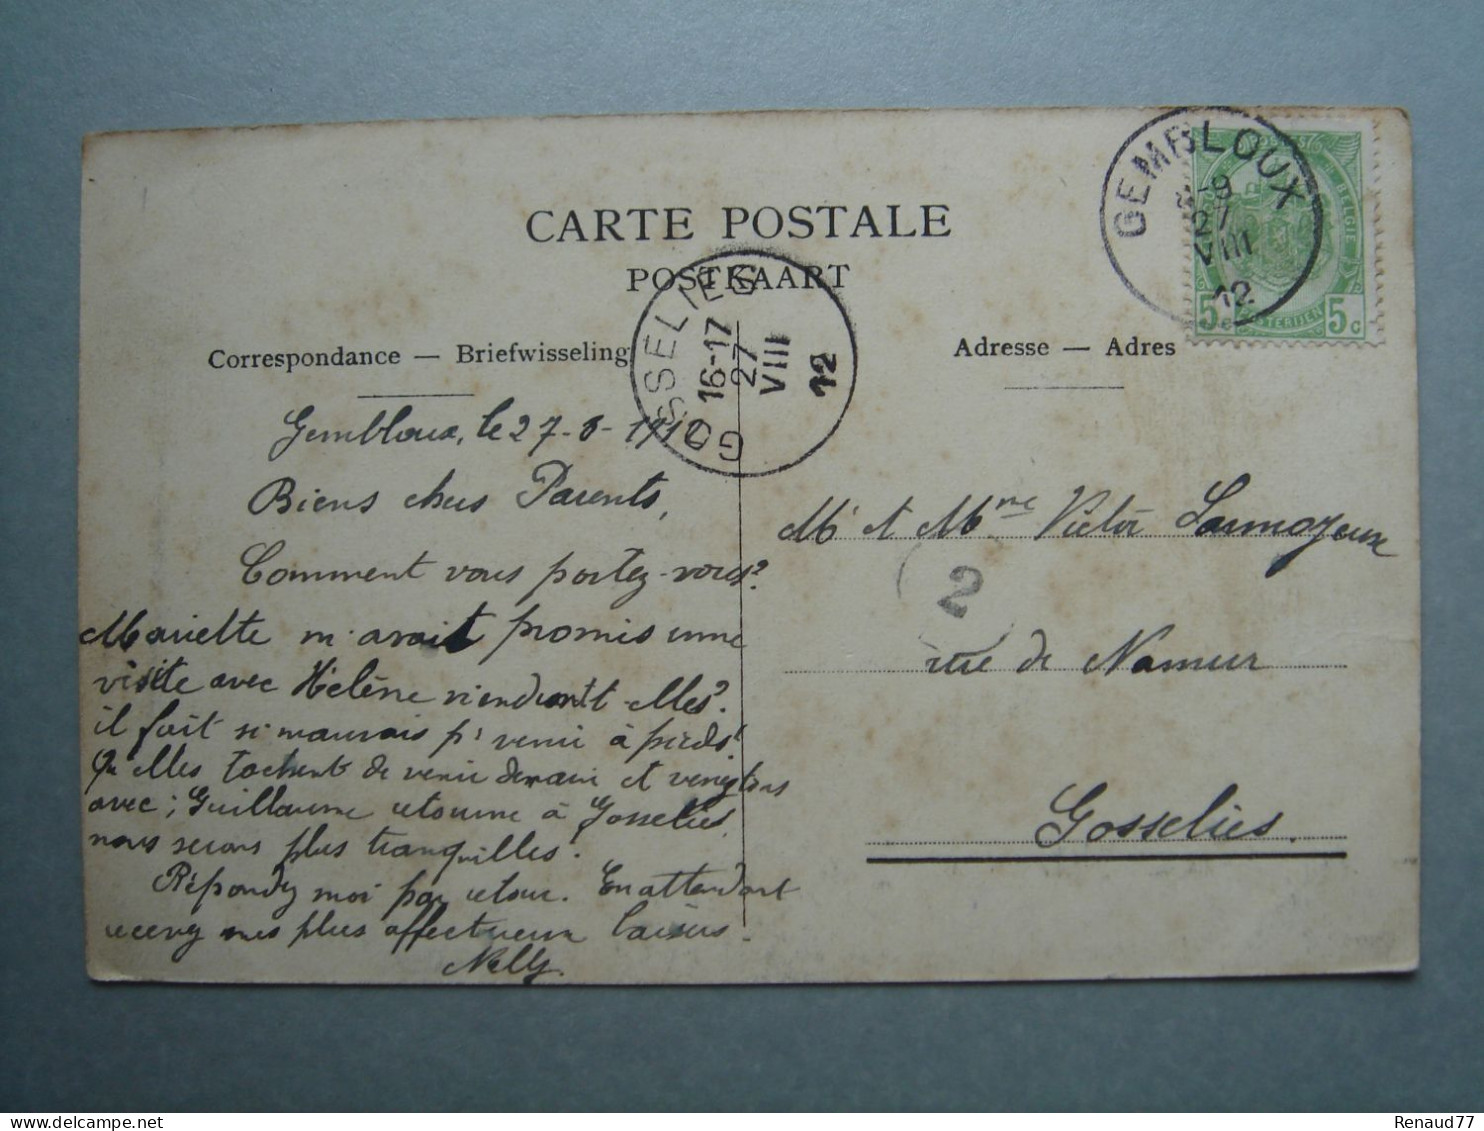 CARTE POSTALE
POSTKAART
Correspondance — Briefwisseling
Adresse — Adres
GEMBLOUX
8-9
27
VIII
12
BELGIE
5c 5c
GOSSELIES
16-17
27
VIII
12
Gembloux, le 27-8-1912
Biens chers Parents,
Comment vous portez-vous?
Mariette m'avait promis une
visite avec Hélène viendront-elles?
il fait si mauvais pr venir à pieds!
Qu'elles tachent de venir demain et
avec; Guillaume retourne à Gosselies,
nous serons plus tranquilles.
Répondez moi par retour. En attendant
recevez mes plus affectueux baisers.
Nelly.
Mr et Mme Victor
2
rue de Namur
Gosselies.
Renaud77